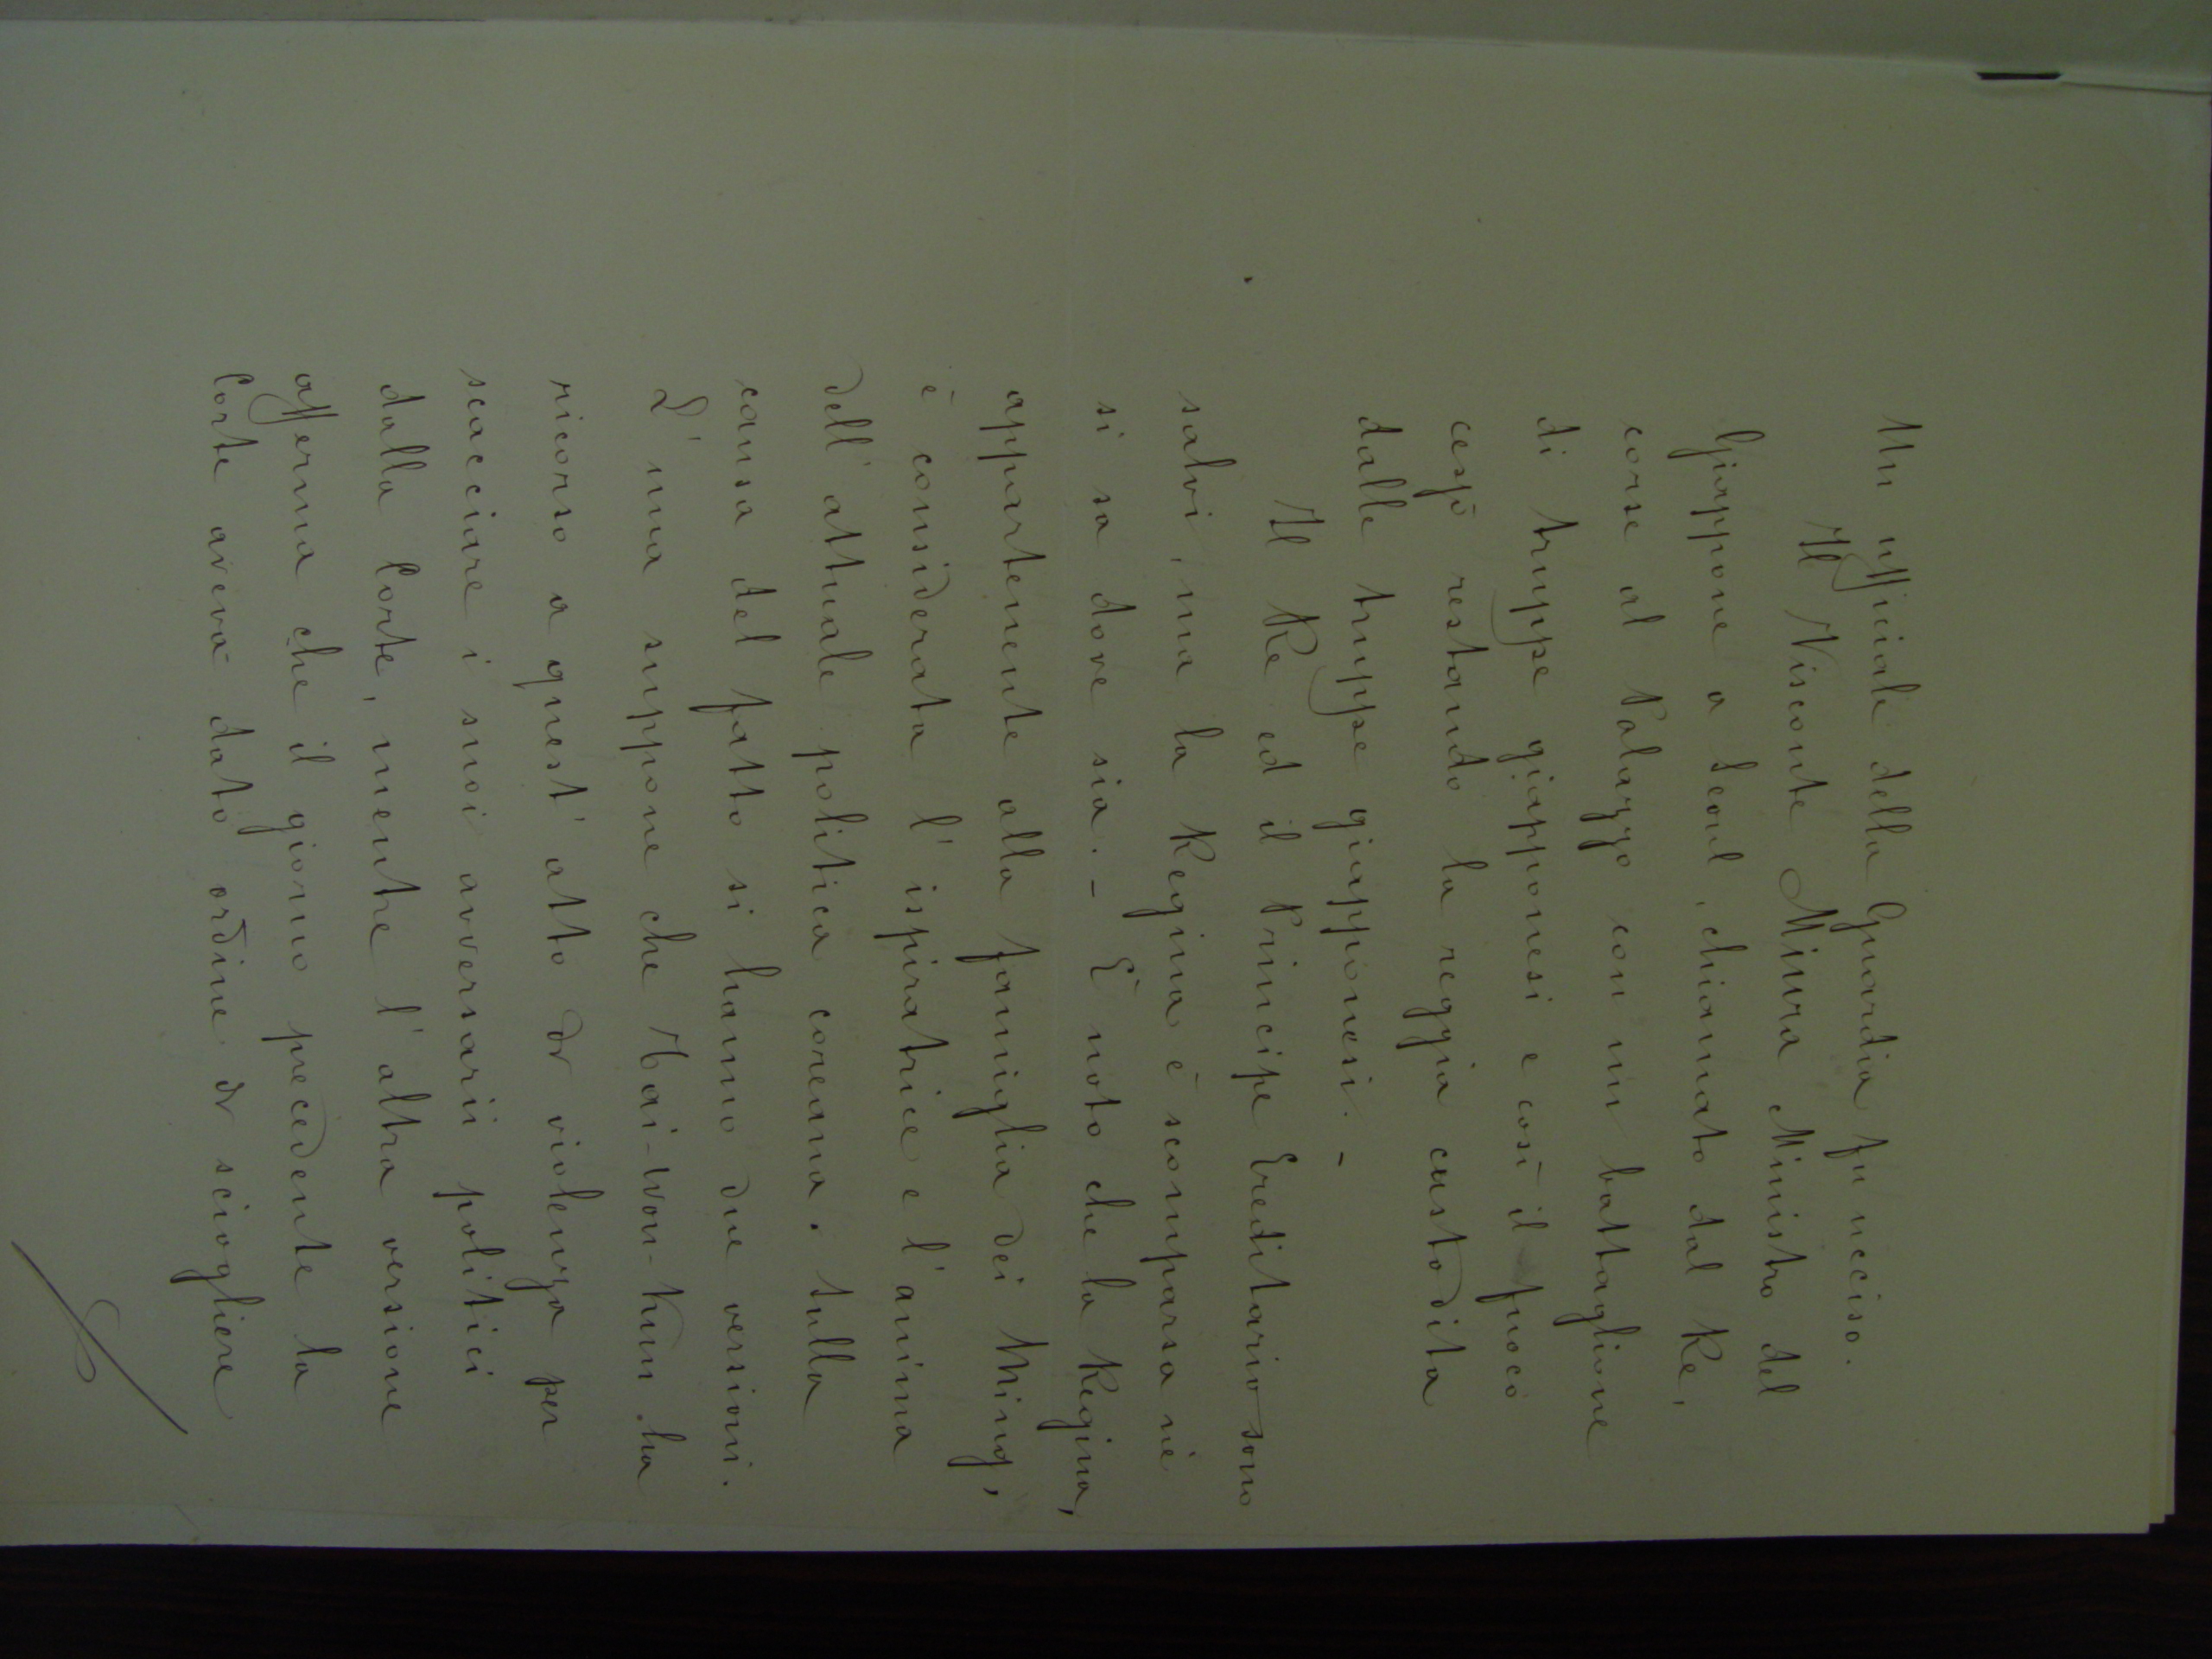 Un ufficiale della Guardia fu ucciso.
Il Visconte Miura Ministro del
Giappone a Seoul, chiamato dal Re,
corse al Palazzo con un battaglione
di truppe giapponesi e così il fuoco
cessò restando la reggia custodita
dalle truppe giapponesi. -
Il Re ed il Principe Ereditario sono
salvi, ma la Regina è scomparsa nè
si sa dove sia. - È noto che la Regina,
appartenente alla famiglia dei Ming,
è considerata l'ispiratrice e l'anima
dell'attuale politica coreana. Sulla
causa del fatto si hanno due versioni.
L'una suppone che Tai-Won-Kun ha
ricorso a quest'atto di violenza per
scacciare i suoi avversarii politici
dalla Corte, mentre l'altra versione
afferma che il giorno precedente la
Corte aveva dato ordine di sciogliere